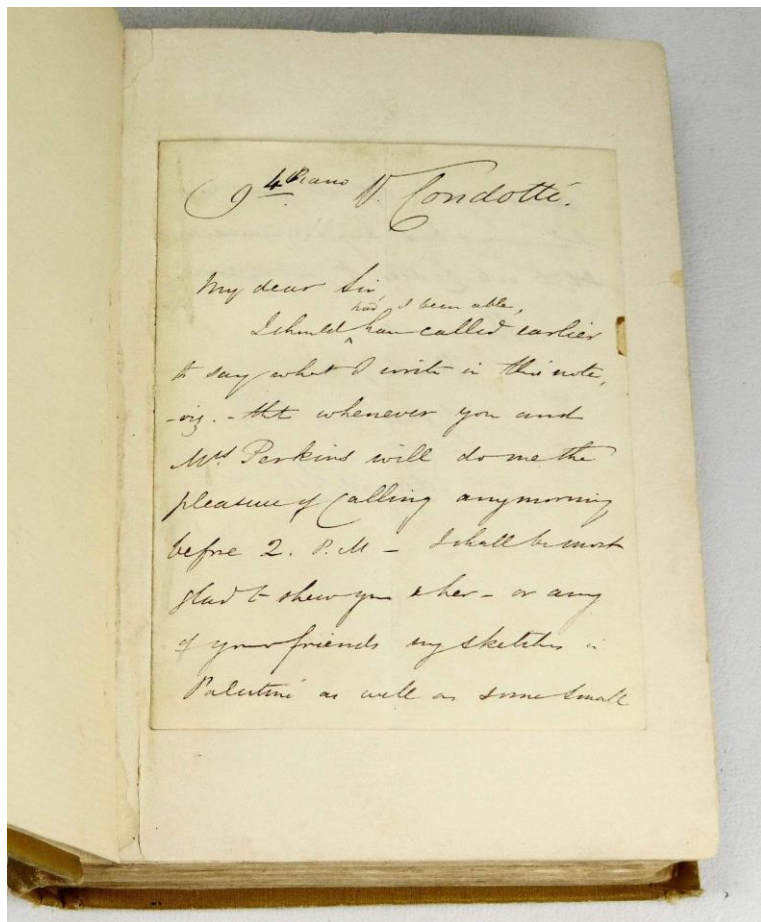 9 4º Piano V. Condotti.
My dear Sir,
had I been able,
I should have called earlier
to say what I write in this note,
- viz. - tht whenever you and
Mrs Perkins will do me the
pleasure of Calling any morning
before 2. P.M - I shall be most
glad to shew you & her - or any
of your friends my sketches in
Palestine as well as some small